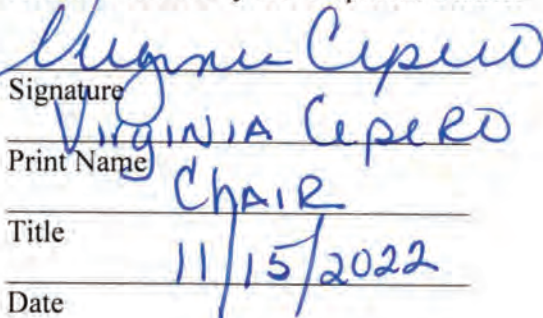 Virginia Cepero
Signature
Virginia Cepero
Print Name
Chair
Title
11/15/2022
Date